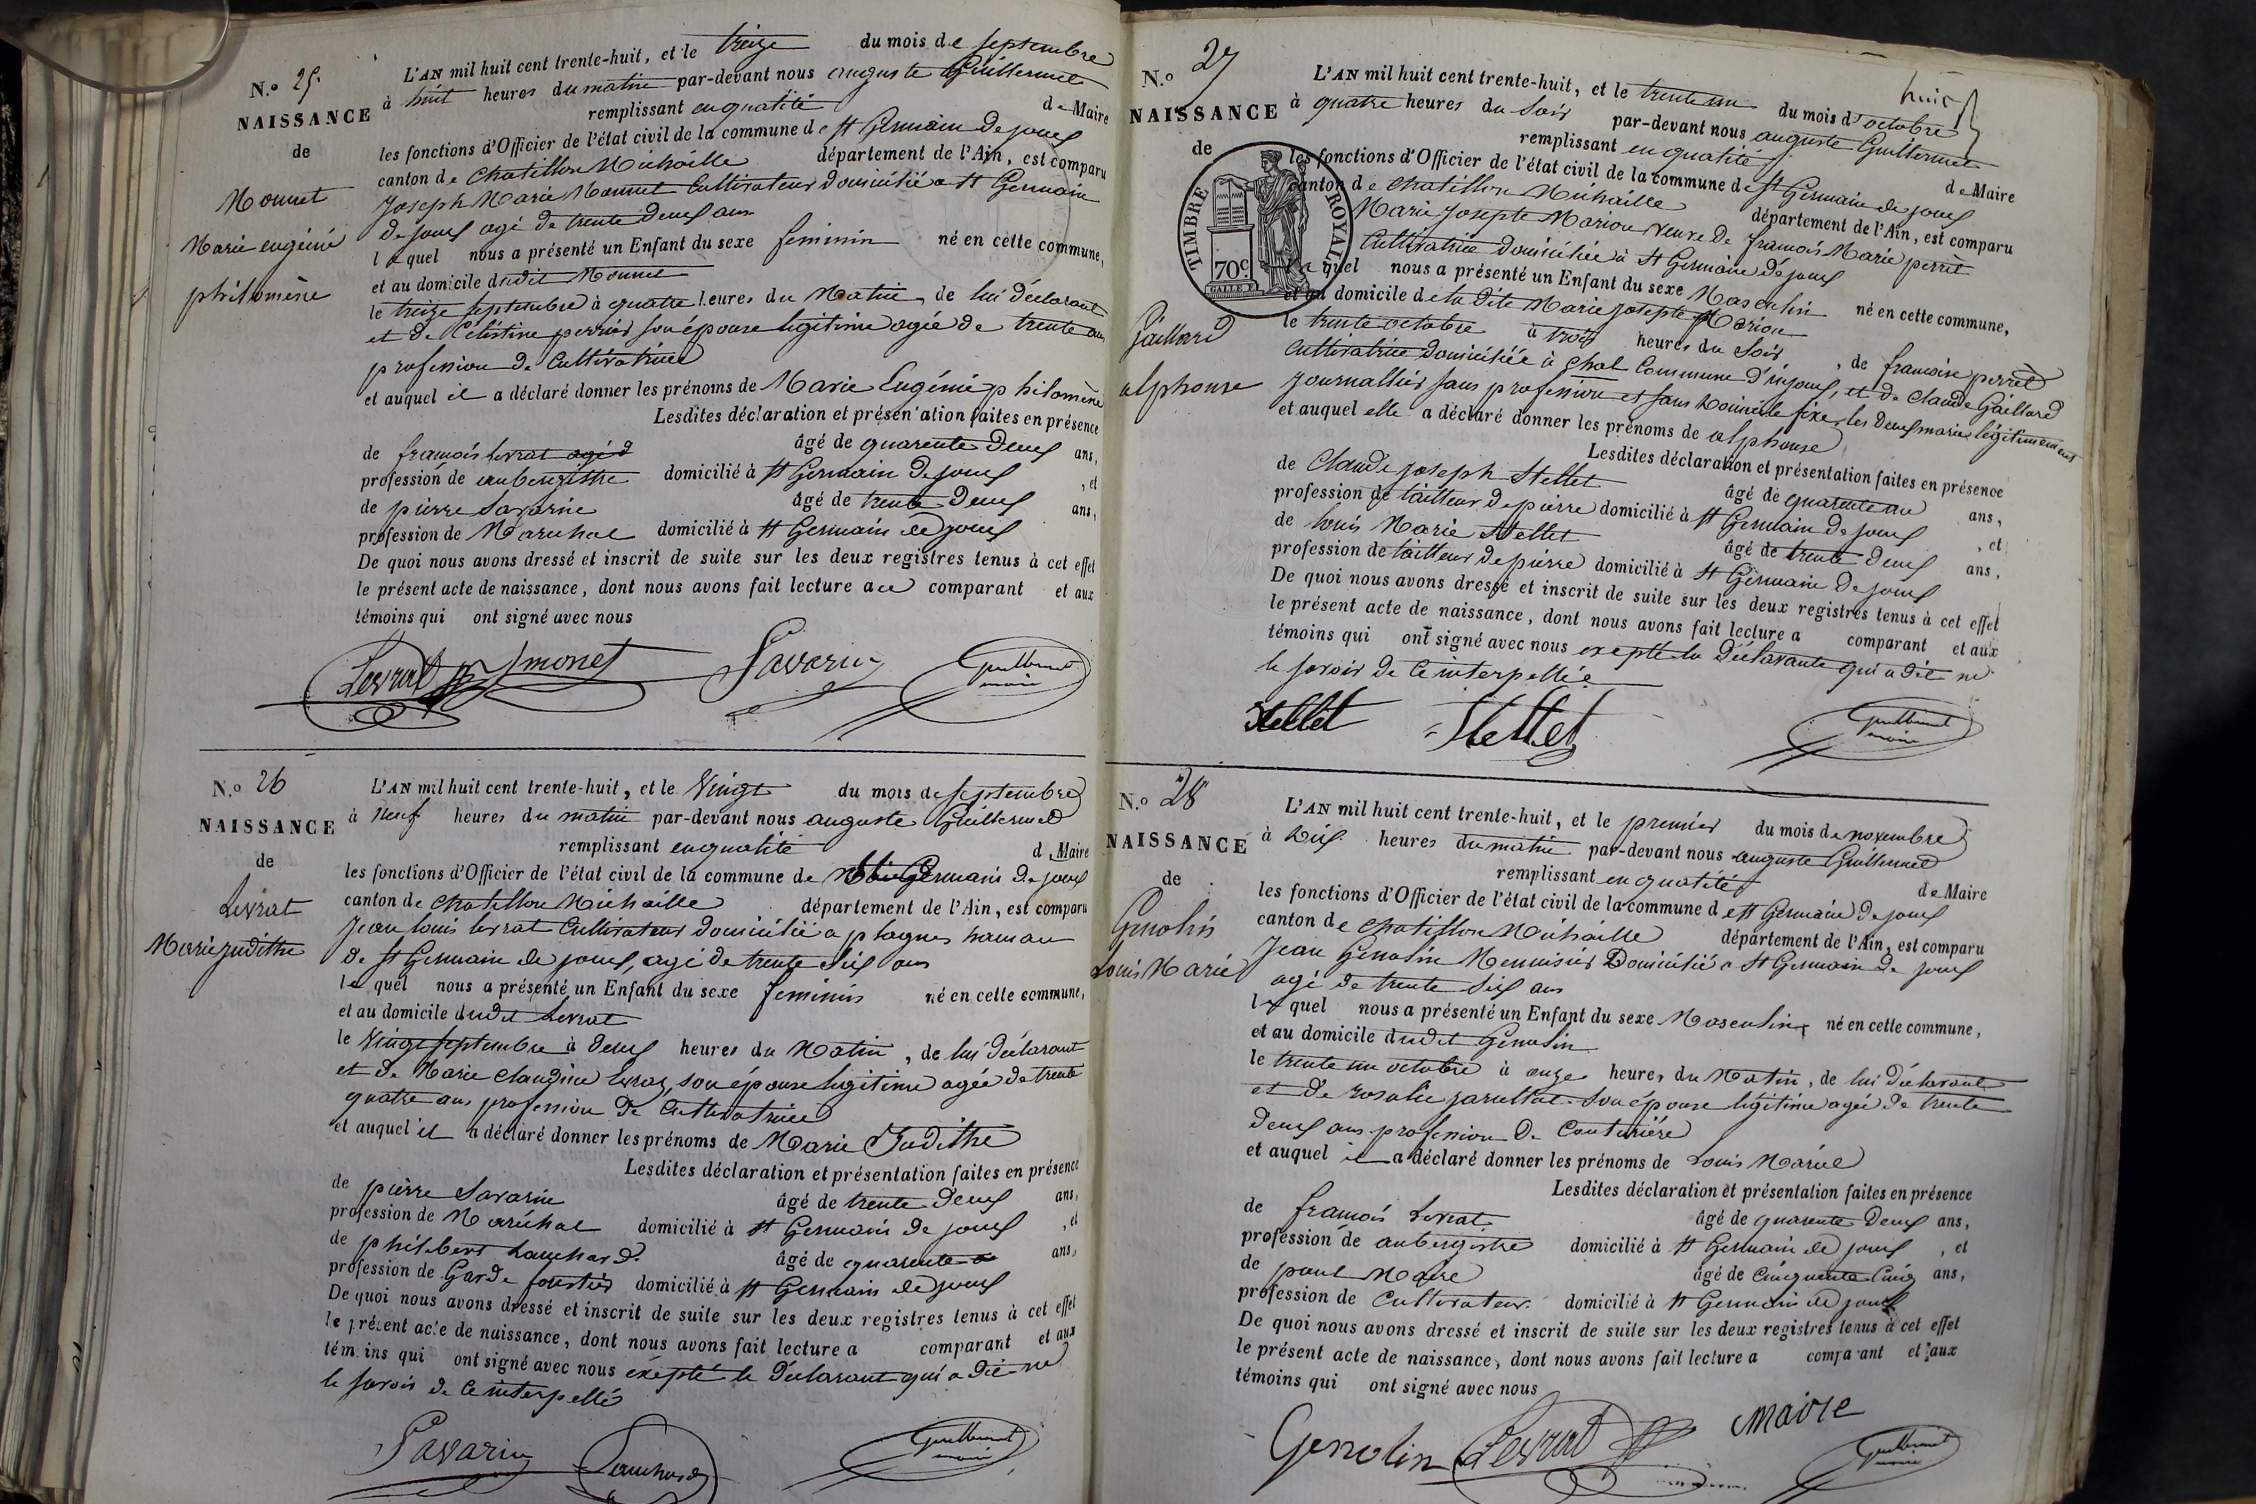 N.o 25
NAISSANCE
de
Monnet
Marie eugénie
philomène
L'AN mil huit cent trente-huit, et le treize du mois de septembre
à huit heures du matin par-devant nous auguste Guillermet
remplissant en qualité de Maire
les fonctions d'Officier de l'état civil de la commune de St Germain de joux
canton de Chatillon Michaille département de l'Ain, est comparu
Joseph Marie Monnet Cultivateur domicilié a St Germain
de joux agé de trente deux ans
lequel nous a présenté un Enfant du sexe feminin né en cette commune,
et au domicile dudit Monnet
le treize septembre à quatre heures du Matin, de lui déclarant
et de Célestine perrier son épouse legitime agée de trente ans
profession de Cultivatrice
et auquel il a déclaré donner les prénoms de Marie Eugénie philomène
Lesdites déclaration et présentation faites en présence
de francois Levrat agé d âgé de quarente deux ans,
profession de aubergiste domicilié à St Germain de joux , et
de pierre Savarin âgé de trente deux ans,
profession de Marechal domicilié à St Germain de joux
De quoi nous avons dressé et inscrit de suite sur les deux registres tenus à cet effet
le présent acte de naissance, dont nous avons fait lecture au comparant et aux
témoins qui ont signé avec nous
Levrat Jmonet Savarin Guillermet
maire
N.o 26
NAISSANCE
de
Levrat
Marie judithe
L'AN mil huit cent trente-huit, et le Vingt du mois de septembre
à neuf heures du matin par-devant nous auguste Guillermet
remplissant en qualité de Maire
les fonctions d'Officier de l'état civil de la commune de Germain de joux
canton de Chatillon Michaille département de l'Ain, est comparu
Jean louis levrat Cultivateur domicilié a plagnes hamau
de St Germain de joux, agé de trente six ans
lequel nous a présenté un Enfant du sexe feminin né en cette commune,
et au domicile dudit Levrat
le Vingt septembre à deux heures du Matin, de lui déclarant
et de Marie Claudine levraz, son épouse legitime agée de trente
quatre ans profession de Cultivatrice
et auquel il a déclaré donner les prénoms de Marie Judithe
Lesdites déclaration et présentation faites en présence
de pierre Savarin âgé de trente deux ans,
profession de Maréchal domicilié à St Germain de joux , et
de philibert Lanchard âgé de quarente ans,
profession de Garde forestier domicilié à St Germain de joux
De quoi nous avons dressé et inscrit de suite sur les deux registres tenus à cet effet
le présent acte de naissance, dont nous avons fait lecture a comparant et aux
témoins qui ont signé avec nous éxépté le déclarant qui a dit ne
le savoir de ce interpellé
Savarin Lanchard Guillermet
maire
N.o 27
NAISSANCE
de
Gaillard
alphonse
huit
TIMBRE ROYAL
70c
GALLE F.
L'AN mil huit cent trente-huit, et le trente un du mois d'octobre
à quatre heures du Soir par-devant nous auguste Guillermet
remplissant en qualité de Maire
les fonctions d'Officier de l'état civil de la commune de St Germain de joux
canton de Chatillon Michaille département de l'Ain, est comparu
Marie Josepte Marion veuve de francois Marie perret
Cultivatrice domiciliée à St Germain de joux
laquel nous a présenté un Enfant du sexe Masculin né en cette commune,
et au domicile de la dite Marie josepte Marion
le trente octobre à trois heures du Soir , de francoise perret
Cultivatrice domiciliée à Chal Commune d'injoux, et de Claude Gaillard
journallier sans profession et sans domicile fixe, les deux mariés légitimement
et auquel elle a déclaré donner les prénoms de alphonse
Lesdites déclaration et présentation faites en présence
de Claude joseph Stellet âgé de quarente un ans,
profession de tailleur de pierre domicilié à St Germain de joux , et
de louis Marie Stellet âgé de trente deux ans,
profession de tailleur de pierre domicilié à St Germain de joux
De quoi nous avons dressé et inscrit de suite sur les deux registres tenus à cet effet
le présent acte de naissance, dont nous avons fait lecture a comparant et aux
témoins qui ont signé avec nous exepté la Déclarante qui a dit ne
le savoir de ce interpellée
Stellet Stellet Guillermet
maire
N.o 28
NAISSANCE
de
Genolin
Louis Marie
L'AN mil huit cent trente-huit, et le premier du mois de novembre
à Dix heures du matin par-devant nous auguste Guillermet
remplissant en qualité de Maire
les fonctions d'Officier de l'état civil de la commune de St Germain de joux
canton de Chatillon Michaille département de l'Ain, est comparu
Jean Genolin Menuisier Domicilié a St Germain de joux
agé de trente six ans
lequel nous a présenté un Enfant du sexe Masculin, né en cette commune,
et au domicile dudit Genolin
le trente un octobre à onze heures du Matin, de lui déclarant
et de rosalie son épouse légitime agée de trente
deux ans profession de Couturière
et auquel il a déclaré donner les prénoms de Louis Marie
Lesdites déclaration et présentation faites en présence
de francois Levrat âgé de quarente deux ans,
profession de aubergiste domicilié à St Germain de joux , et
de paul Maire âgé de Cinquente Cinq ans,
profession de Cultivateur domicilié à St Germain de joux
De quoi nous avons dressé et inscrit de suite sur les deux registres tenus à cet effet
le présent acte de naissance, dont nous avons fait lecture a comparant et aux
témoins qui ont signé avec nous
Genolin Levrat Maire Guillermet
maire